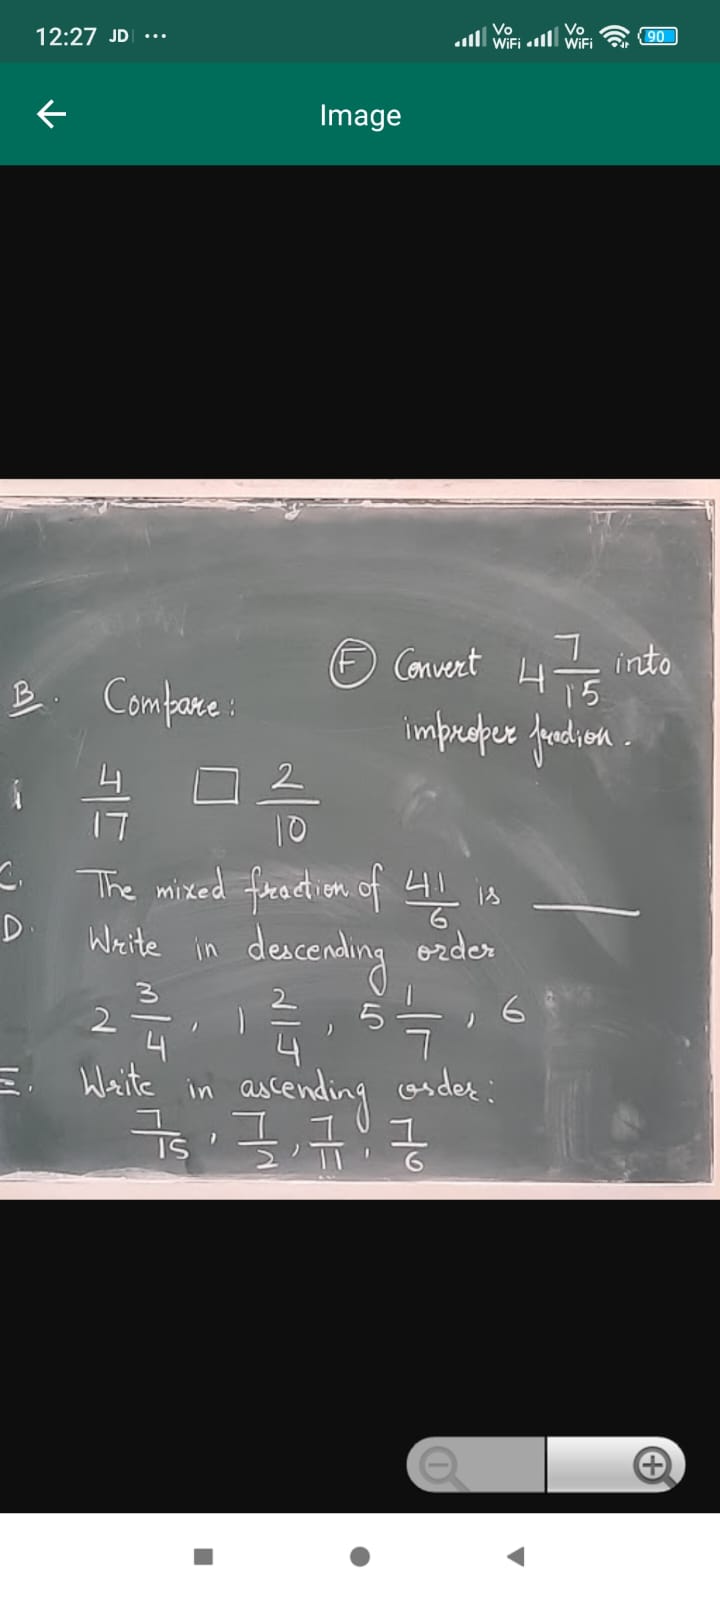 12:27 JD ...
Vo WiFi Vo WiFi 90
Image
B. Compare:
i 4/17 □ 2/10
F Convert 4 7/15 into
improper fraction.
C. The mixed fraction of 41/6 is ____
D. Write in descending order
2 3/4, 1 2/4, 5 1/7, 6
E. Write in ascending order:
7/15, 7/2, 7/11, 7/6